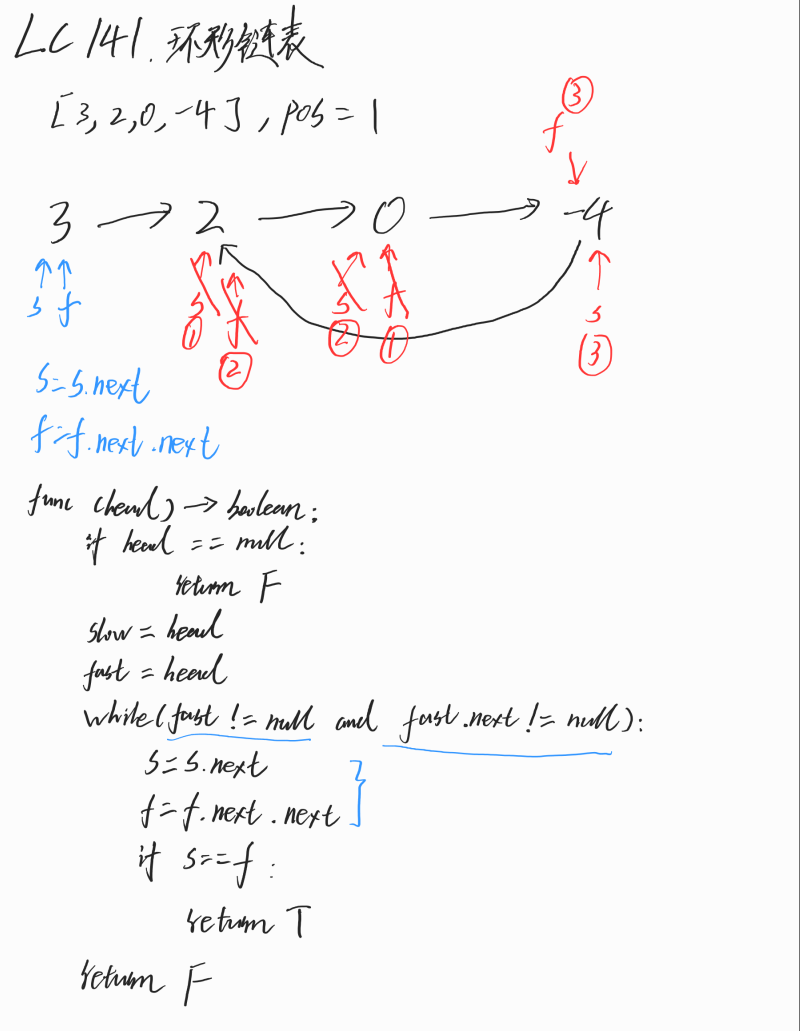 LC 141. 环形链表
[3, 2, 0, -4], pos = 1
③
f
3 → 2 → 0 → -4
s f s f s f s
① ② ② ① ③
s = s.next
f = f.next.next
func (head) → boolean:
if head == null:
return F
slow = head
fast = head
while(fast != null and fast.next != null):
s = s.next
f = f.next.next
if s == f:
return T
return F